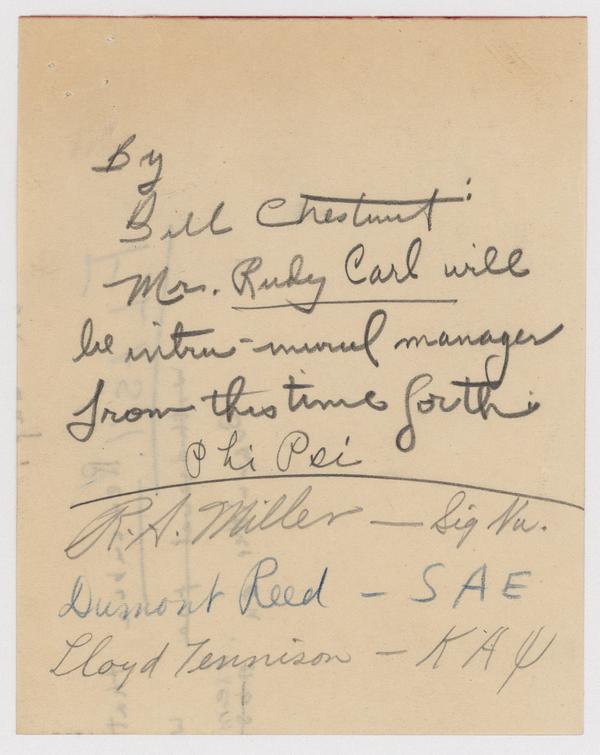 By
Bill Chestnut:
Mrs. Rudy Carl will
be intra-mural manager
from this time forth.
Phi Psi
R.S. Miller — Sig Nu.
Dumont Reed - SAE
Lloyd Tennison - KAΨ